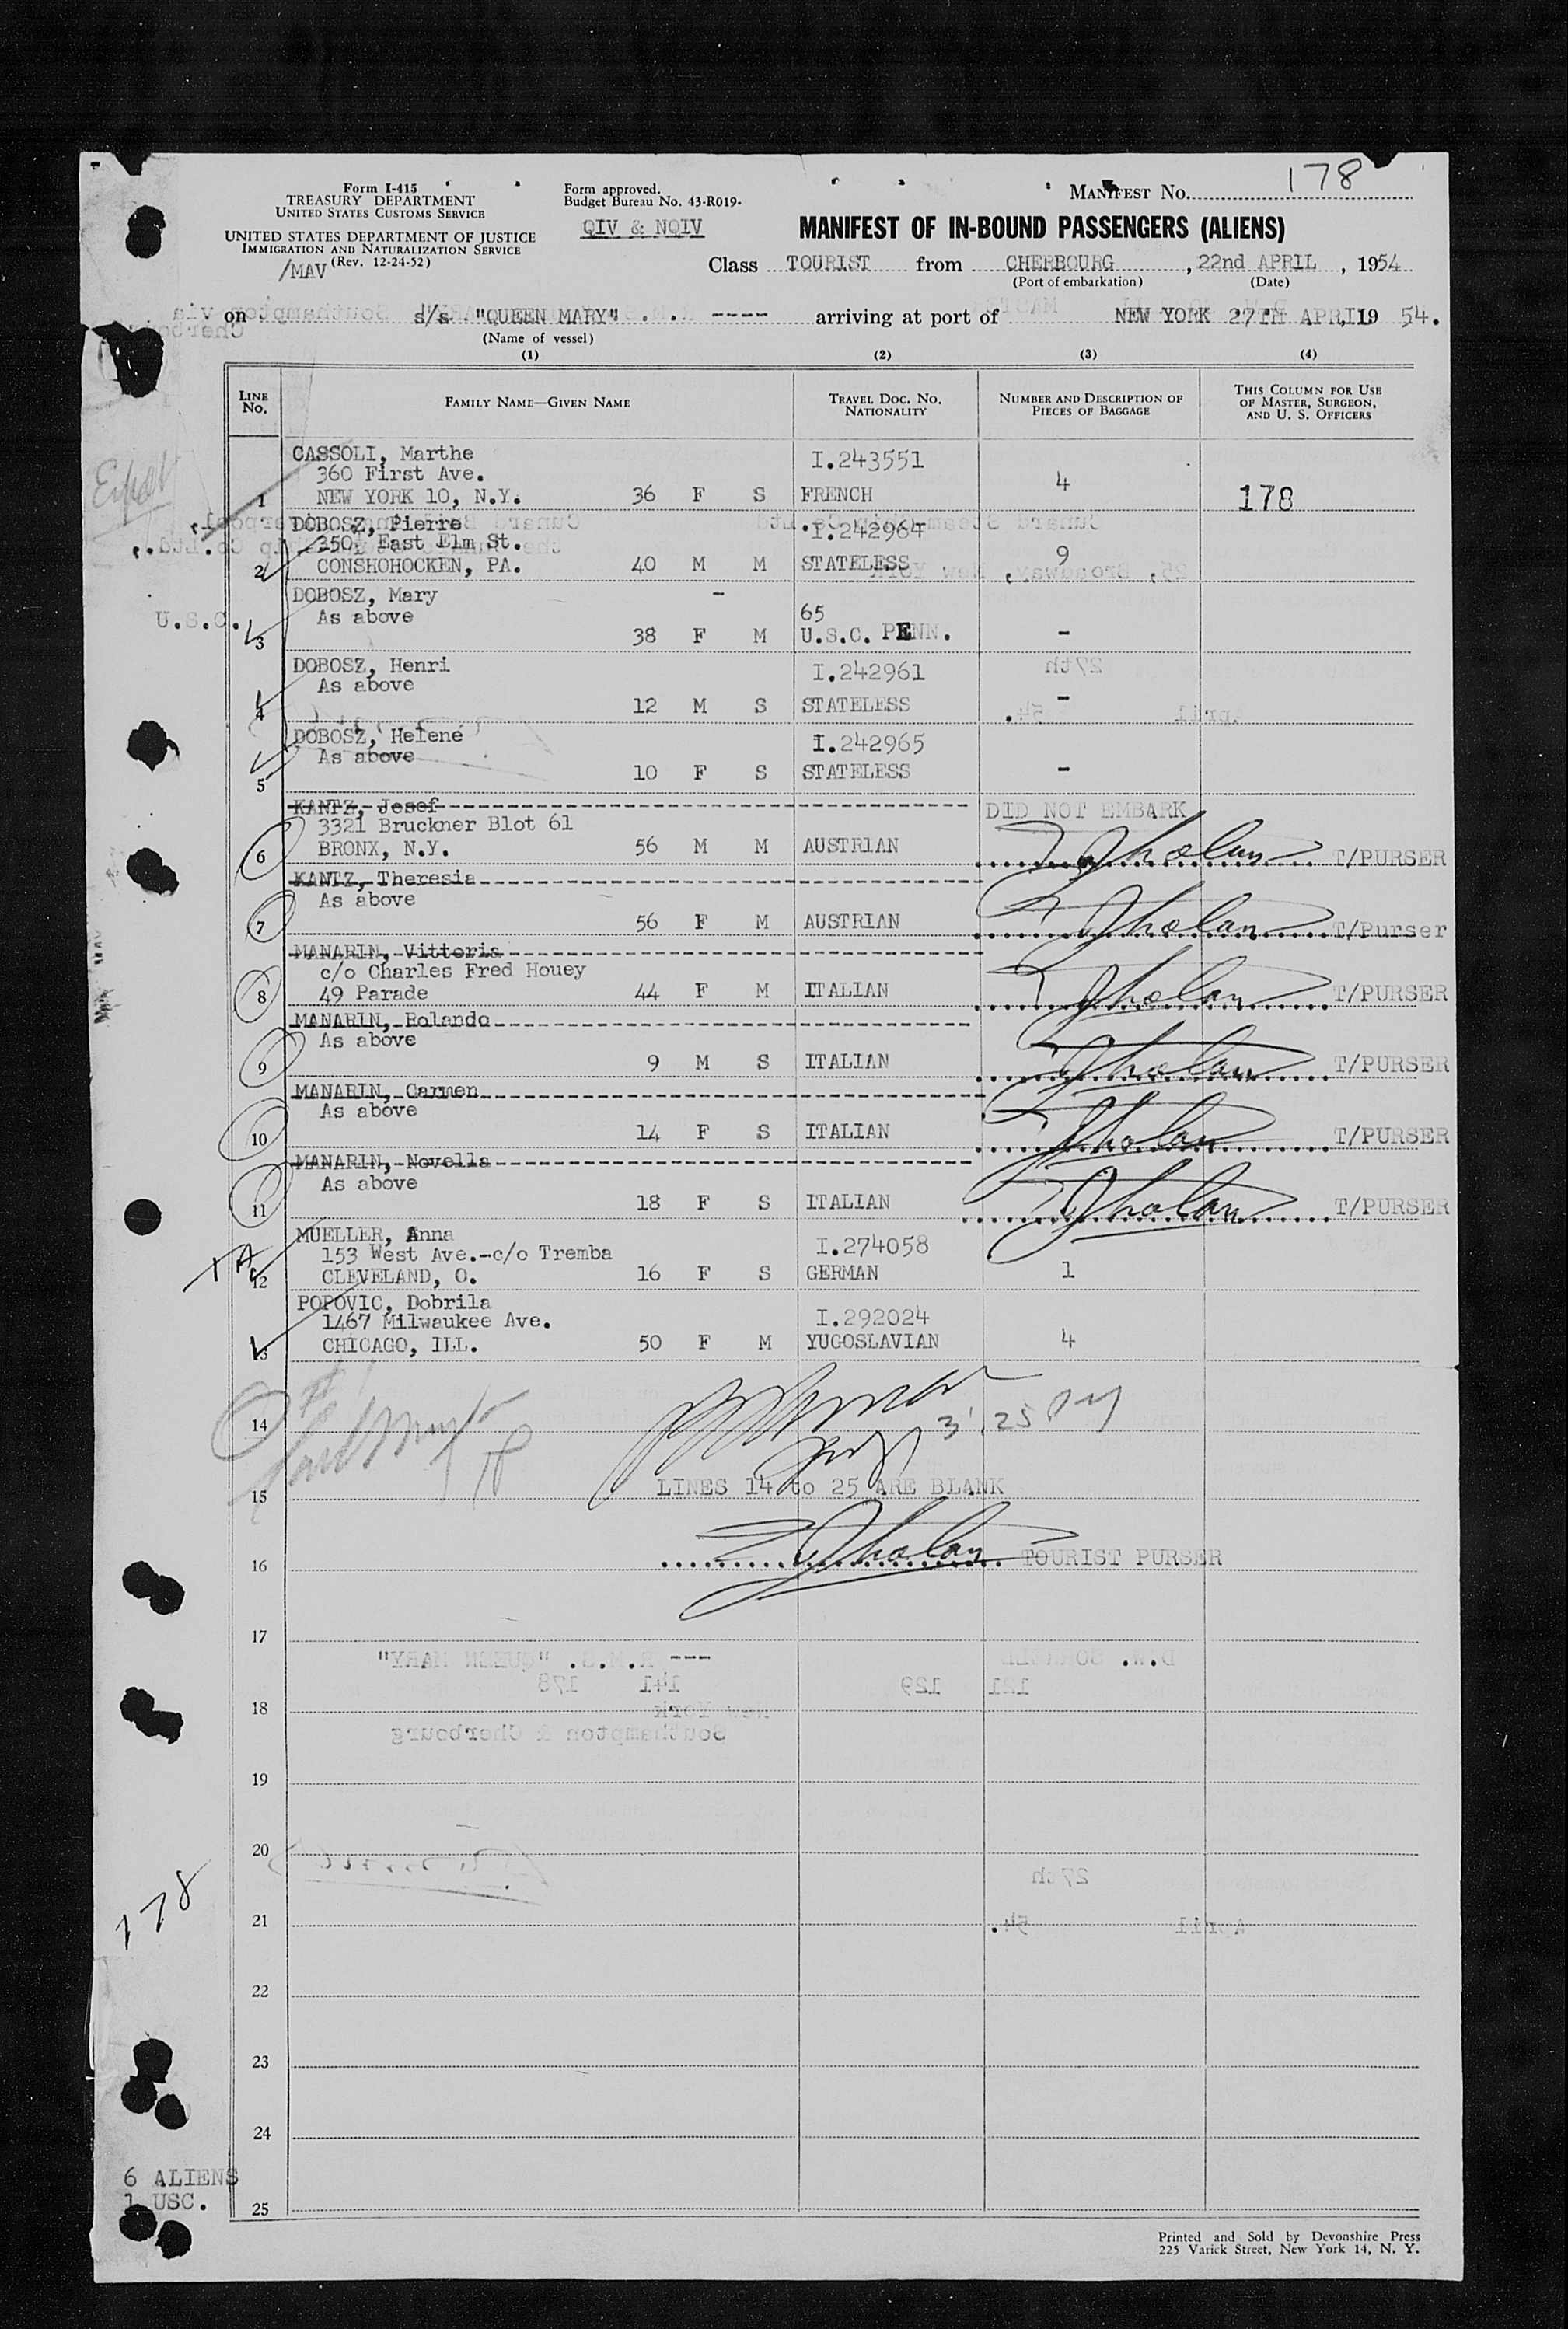 Form I-415
TREASURY DEPARTMENT
UNITED STATES CUSTOMS SERVICE
UNITED STATES DEPARTMENT OF JUSTICE
IMMIGRATION AND NATURALIZATION SERVICE
/MAV (Rev. 12-24-52)
Form approved.
Budget Bureau No. 43-R019-
QIV & NQIV
MANIFEST NO. 178
MANIFEST OF IN-BOUND PASSENGERS (ALIENS)
Class TOURIST from CHERBOURG, 22nd APRIL, 1954
(Port of embarkation) (Date)
on s/s. "QUEEN MARY" ---- arriving at port of NEW YORK 27TH APRIL, 19 54.
(Name of vessel)
(1) (2) (3) (4)
LINE No.
FAMILY NAME—GIVEN NAME
TRAVEL DOC. NO. NATIONALITY
NUMBER AND DESCRIPTION OF PIECES OF BAGGAGE
THIS COLUMN FOR USE OF MASTER, SURGEON, AND U. S. OFFICERS
CASSOLI, Marthe I.243551
360 First Ave.
1 NEW YORK 10, N.Y. 36 F S FRENCH 4 178
DOBOSZ, Pierre I.242964
350, East Elm St.
2 CONSHOHOCKEN, PA. 40 M M STATELESS 9
DOBOSZ, Mary -
As above 65
U.S.C. 3 38 F M U.S.C. PENN. -
DOBOSZ, Henri I.242961
As above
4 12 M S STATELESS -
DOBOSZ, Helene I.242965
As above
5 10 F S STATELESS -
KANTZ, Josef DID NOT EMBARK
3321 Bruckner Blot 61
6 BRONX, N.Y. 56 M M AUSTRIAN T/PURSER
KANTZ, Theresia
As above
7 56 F M AUSTRIAN T/Purser
MANARIN, Vittoria
c/o Charles Fred Houey
8 49 Parade 44 F M ITALIAN T/PURSER
MANARIN, Rolando
As above
9 9 M S ITALIAN T/PURSER
MANARIN, Carmen
As above
10 14 F S ITALIAN T/PURSER
MANARIN, Novella
As above
11 18 F S ITALIAN T/PURSER
MUELLER, Anna I.274058
153 West Ave.-c/o Tremba
12 CLEVELAND, O. 16 F S GERMAN 1
POPOVIC, Dobrila I.292024
1467 Milwaukee Ave.
13 CHICAGO, ILL. 50 F M YUGOSLAVIAN 4
14
LINES 14 to 25 ARE BLANK
15
16 TOURIST PURSER
17
18
19
20
178
21
22
23
24
6 ALIENS
1 USC.
25
Printed and Sold by Devonshire Press
225 Varick Street, New York 14, N. Y.